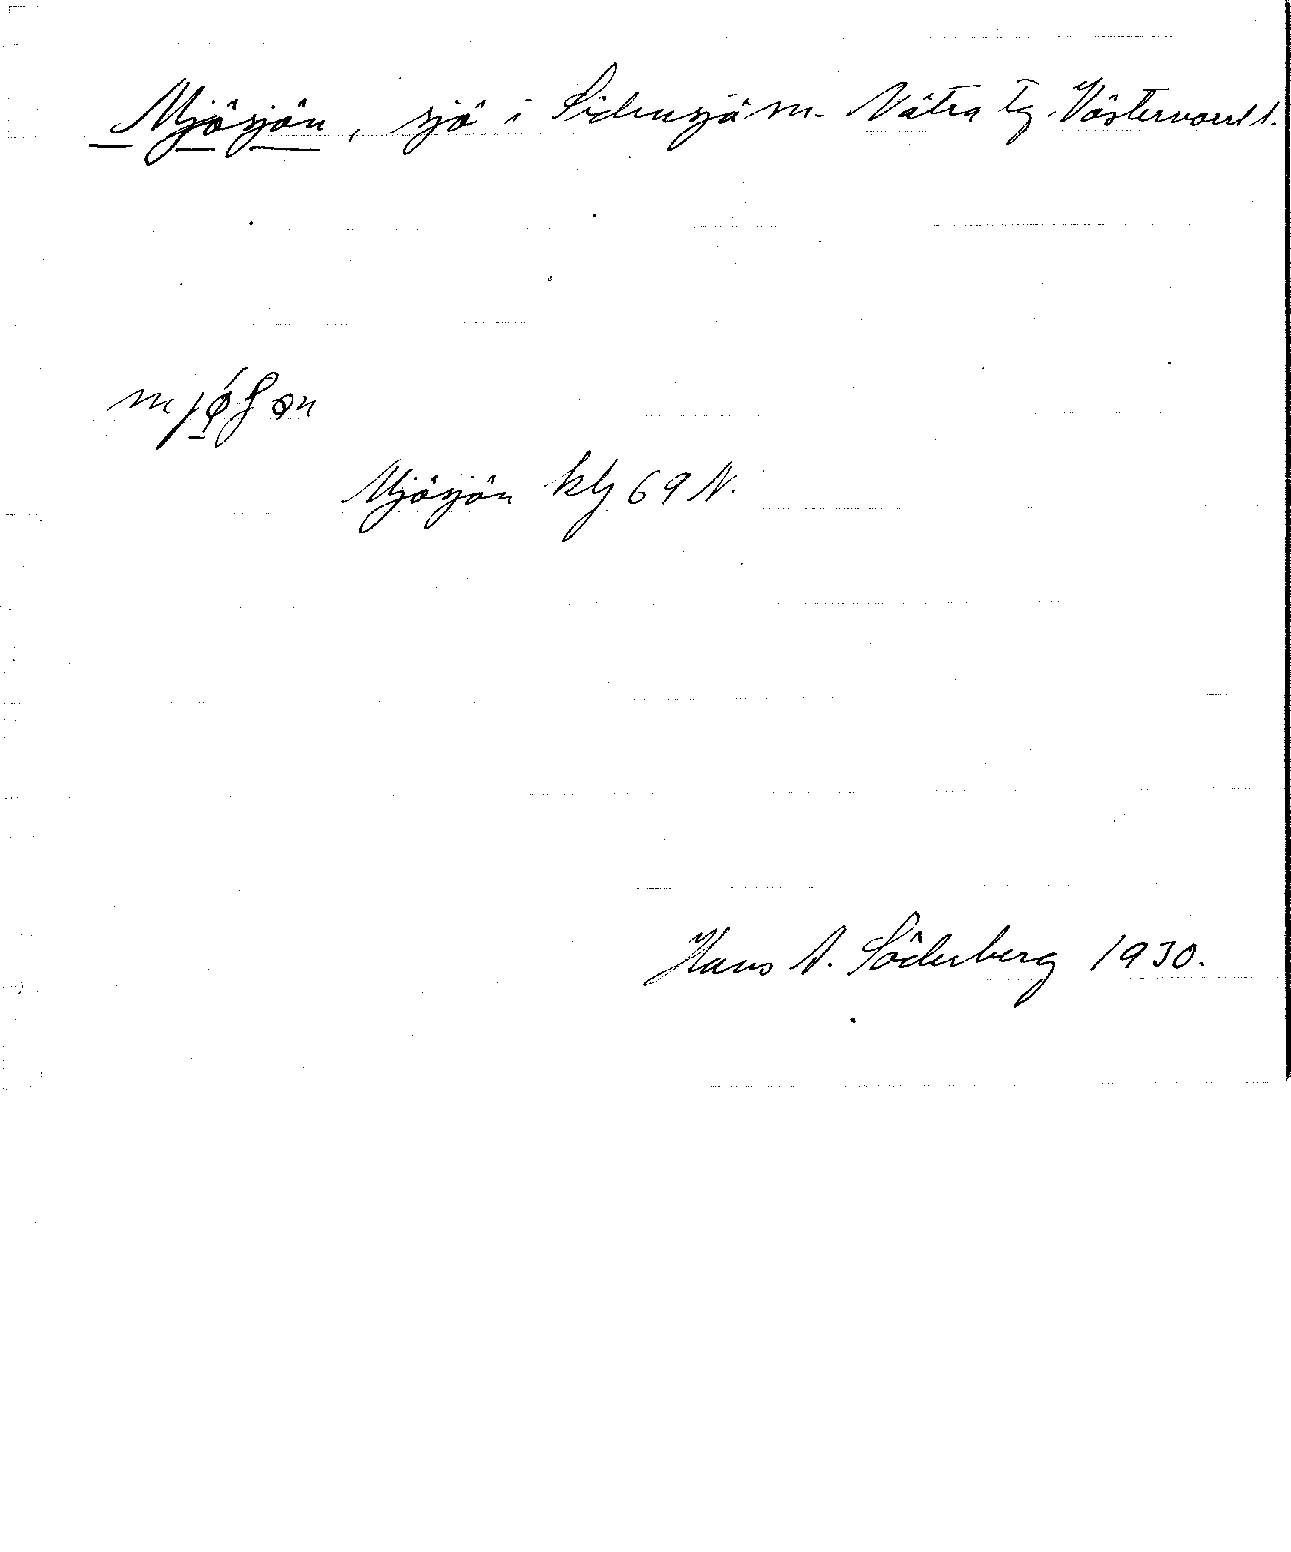 Mjösjön, sjö i Sidensjö sn. Nätra tg. Västernorrl l.
Mjösjön kbl 69 N.
Hans A. Söderberg 1930.